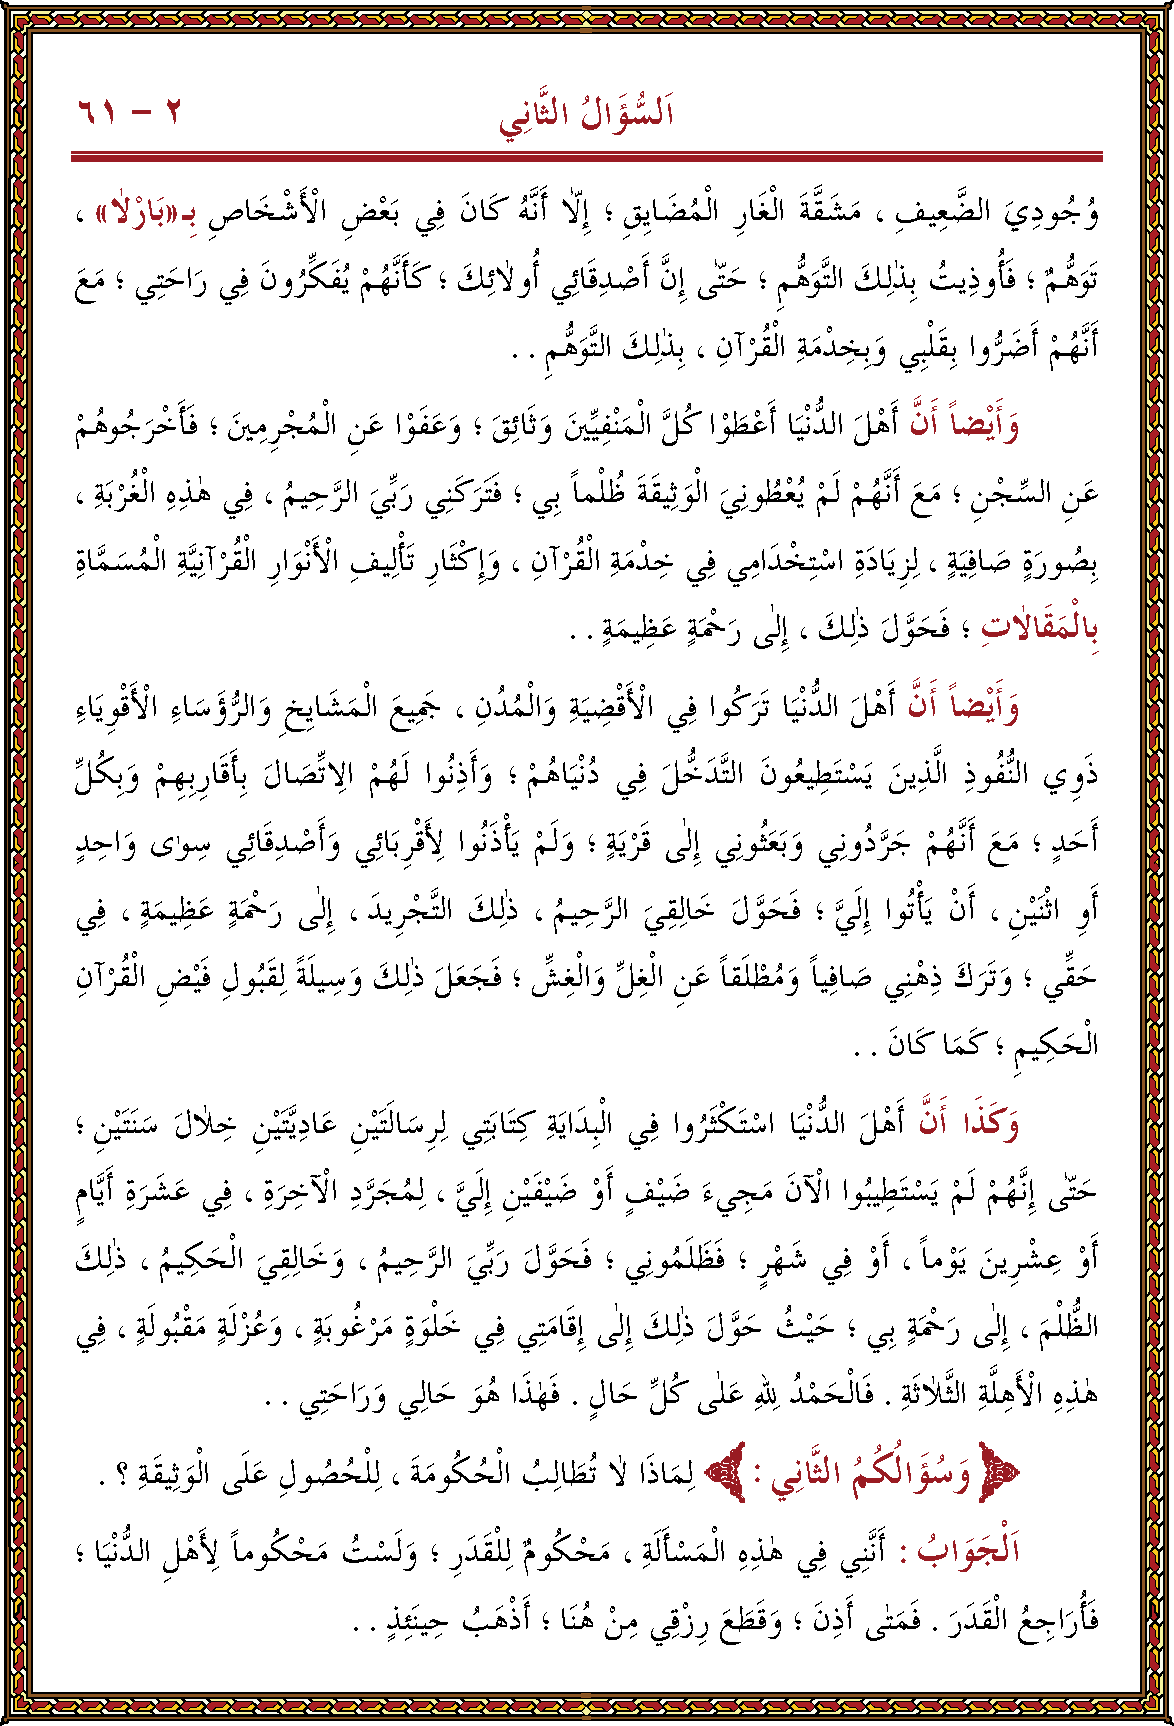 اَلسُّؤَالُ الثَّانِي ٢ - ٦١
وُجُودِيَ الضَّعِيفِ ، مَشَقَّةَ الْغَارِ الْمُضَايِقِ ؛ إِلَّا أَنَّهُ كَانَ فِي بَعْضِ الْأَشْخَاصِ بِـ«بَارْلَا» ،
تَوَهُّمٌ ؛ فَأُوذِيتُ بِذٰلِكَ التَّوَهُّمِ ؛ حَتّٰى إِنَّ أَصْدِقَائِي أُولٰئِكَ ؛ كَأَنَّهُمْ يُفَكِّرُونَ فِي رَاحَتِي ؛ مَعَ
أَنَّهُمْ أَضَرُّوا بِقَلْبِي وَبِخِدْمَةِ الْقُرْآنِ ، بِذٰلِكَ التَّوَهُّمِ . .
وَأَيْضاً أَنَّ أَهْلَ الدُّنْيَا أَعْطَوْا كُلَّ الْمَنْفِيِّينَ وَثَائِقَ ؛ وَعَفَوْا عَنِ الْمُجْرِمِينَ ؛ فَأَخْرَجُوهُمْ
عَنِ السِّجْنِ ؛ مَعَ أَنَّهُمْ لَمْ يُعْطُونِيَ الْوَثِيقَةَ ظُلْماً بِي ؛ فَتَرَكَنِي رَبِّيَ الرَّحِيمُ ، فِي هٰذِهِ الْغُرْبَةِ ،
بِصُورَةٍ صَافِيَةٍ ، لِزِيَادَةِ اسْتِخْدَامِي فِي خِدْمَةِ الْقُرْآنِ ، وَإِكْثَارِ تَأْلِيفِ الْأَنْوَارِ الْقُرْآنِيَّةِ الْمُسَمَّاةِ
بِالْمَقَالَاتِ ؛ فَحَوَّلَ ذٰلِكَ ، إِلٰى رَحْمَةٍ عَظِيمَةٍ . .
وَأَيْضاً أَنَّ أَهْلَ الدُّنْيَا تَرَكُوا فِي الْأَقْضِيَةِ وَالْمُدُنِ ، جَمِيعَ الْمَشَايِخِ وَالرُّؤَسَاءِ الْأَقْوِيَاءِ
ذَوِي النُّفُوذِ الَّذِينَ يَسْتَطِيعُونَ التَّدَخُّلَ فِي دُنْيَاهُمْ ؛ وَأَذِنُوا لَهُمْ الِاتِّصَالَ بِأَقَارِبِهِمْ وَبِكُلِّ
أَحَدٍ ؛ مَعَ أَنَّهُمْ جَرَّدُونِي وَبَعَثُونِي إِلٰى قَرْيَةٍ ؛ وَلَمْ يَأْذَنُوا لِأَقْرِبَائِي وَأَصْدِقَائِي سِوٰى وَاحِدٍ
أَوِ اثْنَيْنِ ، أَنْ يَأْتُوا إِلَيَّ ؛ فَحَوَّلَ خَالِقِيَ الرَّحِيمُ ، ذٰلِكَ التَّجْرِيدَ ، إِلٰى رَحْمَةٍ عَظِيمَةٍ ، فِي
حَقِّي ؛ وَتَرَكَ ذِهْنِي صَافِياً وَمُطْلَقاً عَنِ الْغِلِّ وَالْغِشِّ ؛ فَجَعَلَ ذٰلِكَ وَسِيلَةً لِقَبُولِ فَيْضِ الْقُرْآنِ
الْحَكِيمِ ؛ كَمَا كَانَ . .
وَكَذَا أَنَّ أَهْلَ الدُّنْيَا اسْتَكْثَرُوا فِي الْبِدَايَةِ كِتَابَتِي لِرِسَالَتَيْنِ عَادِيَّتَيْنِ خِلَالَ سَنَتَيْنِ ؛
حَتّٰى إِنَّهُمْ لَمْ يَسْتَطِيبُوا الْآنَ مَجِيءَ ضَيْفٍ أَوْ ضَيْفَيْنِ إِلَيَّ ، لِمُجَرَّدِ الْآخِرَةِ ، فِي عَشَرَةِ أَيَّامٍ
أَوْ عِشْرِينَ يَوْماً ، أَوْ فِي شَهْرٍ ؛ فَظَلَمُونِي ؛ فَحَوَّلَ رَبِّيَ الرَّحِيمُ ، وَخَالِقِيَ الْحَكِيمُ ، ذٰلِكَ
الظُّلْمَ ، إِلٰى رَحْمَةٍ بِي ؛ حَيْثُ حَوَّلَ ذٰلِكَ إِلٰى إِقَامَتِي فِي خَلْوَةٍ مَرْغُوبَةٍ ، وَعُزْلَةٍ مَقْبُولَةٍ ، فِي
هٰذِهِ الْأَهِلَّةِ الثَّلَاثَةِ . فَالْحَمْدُ لِلّٰهِ عَلٰى كُلِّ حَالٍ . فَهٰذَا هُوَ حَالِي وَرَاحَتِي . .
وَسُؤَالُكُمُ الثَّانِي : لِمَاذَا لَا تُطَالِبُ الْحُكُومَةَ ، لِلْحُصُولِ عَلَى الْوَثِيقَةِ ؟ .
اَلْجَوَابُ : أَنَّنِي فِي هٰذِهِ الْمَسْأَلَةِ ، مَحْكُومٌ لِلْقَدَرِ ؛ وَلَسْتُ مَحْكُوماً لِأَهْلِ الدُّنْيَا ؛
فَأُرَاجِعُ الْقَدَرَ . فَمَتٰى أَذِنَ ؛ وَقَطَعَ رِزْقِي مِنْ هُنَا ؛ أَذْهَبُ حِينَئِذٍ . .